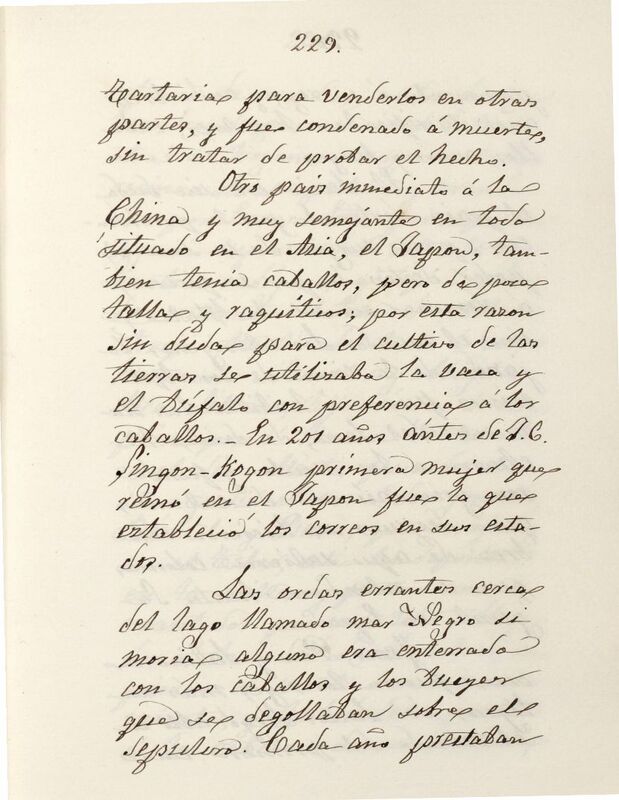 229.
Tartaria para venderlos en otras
partes, y fue condenado á muerte,
sin tratar de probar el hecho.
Otro pais inmediato á la
China y muy semejante en todo
situado en el Asia, el Japon, tam-
bien tenia caballos, pero de poca
talla y raquíticos; por esta razon
sin duda para el cultivo de las
tierras se utilizaba la vaca y
el búfalo con preferencia á los
caballos. - En 201 años ántes de J.C.
Singon-Kogon primera mujer que
reinó en el Japon fue la que
estableció los correos en sus esta-
dos.
Las ordas errantes cerca
del lago llamado mar Negro si
moria alguno era enterrado
con los caballos y los bueyes
que se degollaban sobre el
sepulcro. Cada año prestaban